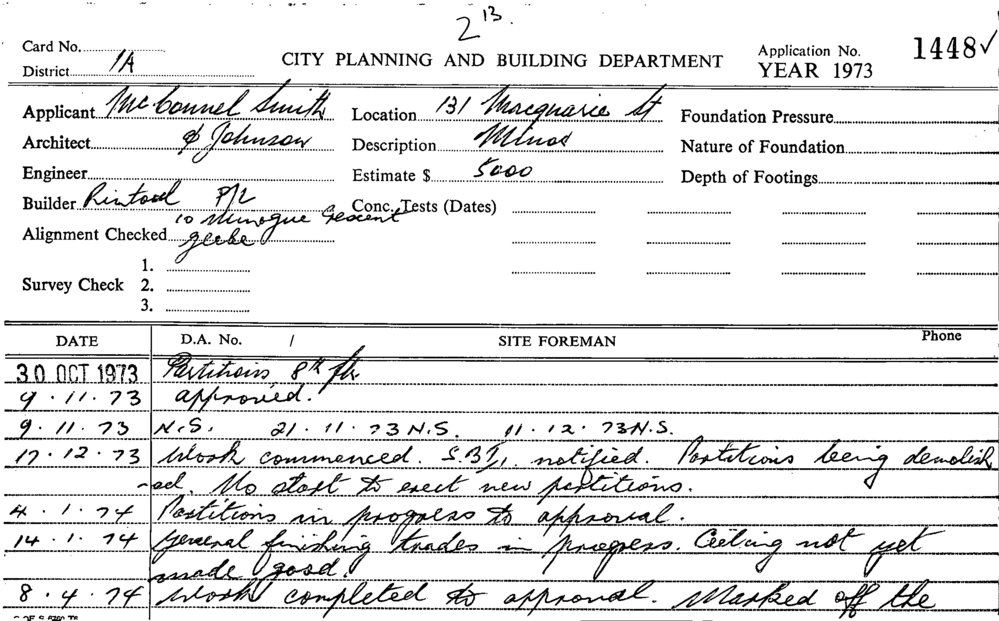 2 13.
Card No.
District 1A
CITY PLANNING AND BUILDING DEPARTMENT
Application No. 1448 ✓
YEAR 1973
Applicant McConnel Smith
Location 131 Macquarie St
Foundation Pressure
Architect & Johnson
Description Minor
Nature of Foundation
Engineer
Estimate $ 5000
Depth of Footings
Builder Rintoul P/L
Conc. Tests (Dates)
10 Minogue Crescent
Alignment Checked Glebe
1.
Survey Check 2.
3.
DATE D.A. No. / SITE FOREMAN Phone
30 OCT 1973 Partitions 8th flr
9.11.73 approved.
9.11.73 N.S. 21.11.73 N.S. 11.12.73 N.S.
17.12.73 Work commenced. notified. Partitions being demolish
-ed. No start to erect new partitions.
4.1.74 Partitions in progress to approval.
14.1.74 General finishing trades in progress. Ceiling not yet
made good.
8.4.74 Work completed to approval. Marked off the